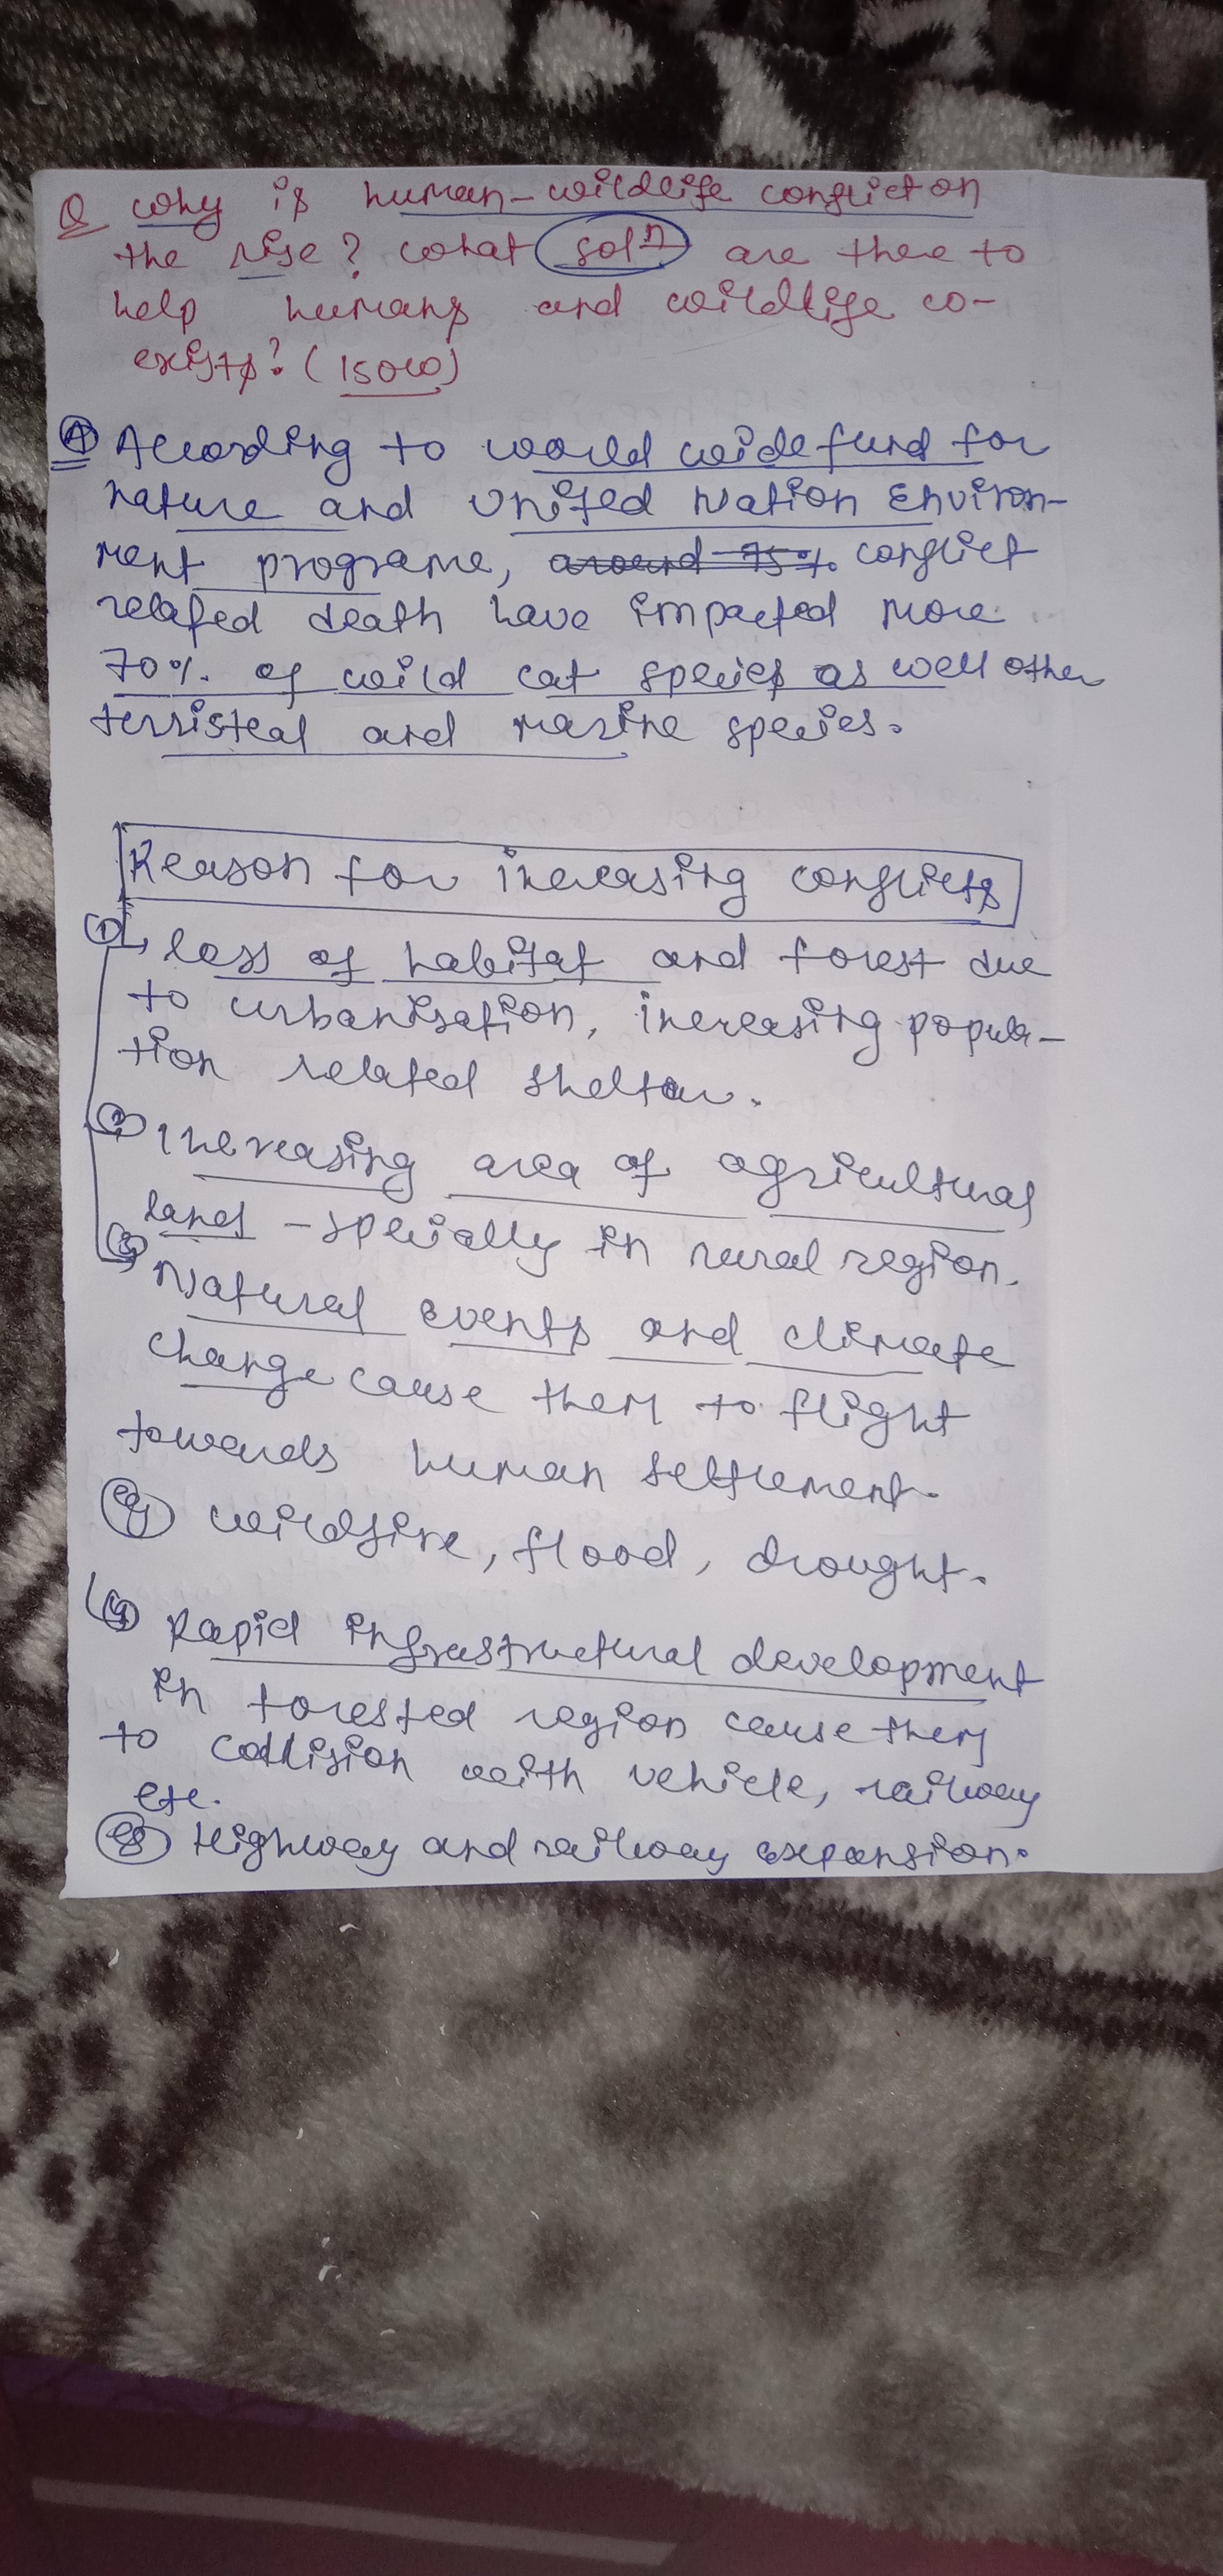 Q why is human-wildlife conflict on
the rise? what solⁿ are there to
help humans and wildlife co-
exists? (150w)
A According to world wide fund for
nature and United Nation Environ-
ment programe, around 75% conflict
related death have impacted more
70% of wild cat species as well other
terristeal and marine species.
Reason for increasing conflicts
(1) loss of habitat and forest due
to urbanisation, increasing popula-
tion related shelter.
(2) Increasing area of agricultural
land - specially in rural region.
(3) Natural events and climate
change cause them to flight
towards human settlement.
eg wildfire, flood, drought.
(4) Rapid infrastructural development
in forested region cause them
to collision with vehicle, railway
etc.
eg Highway and railway expansion.